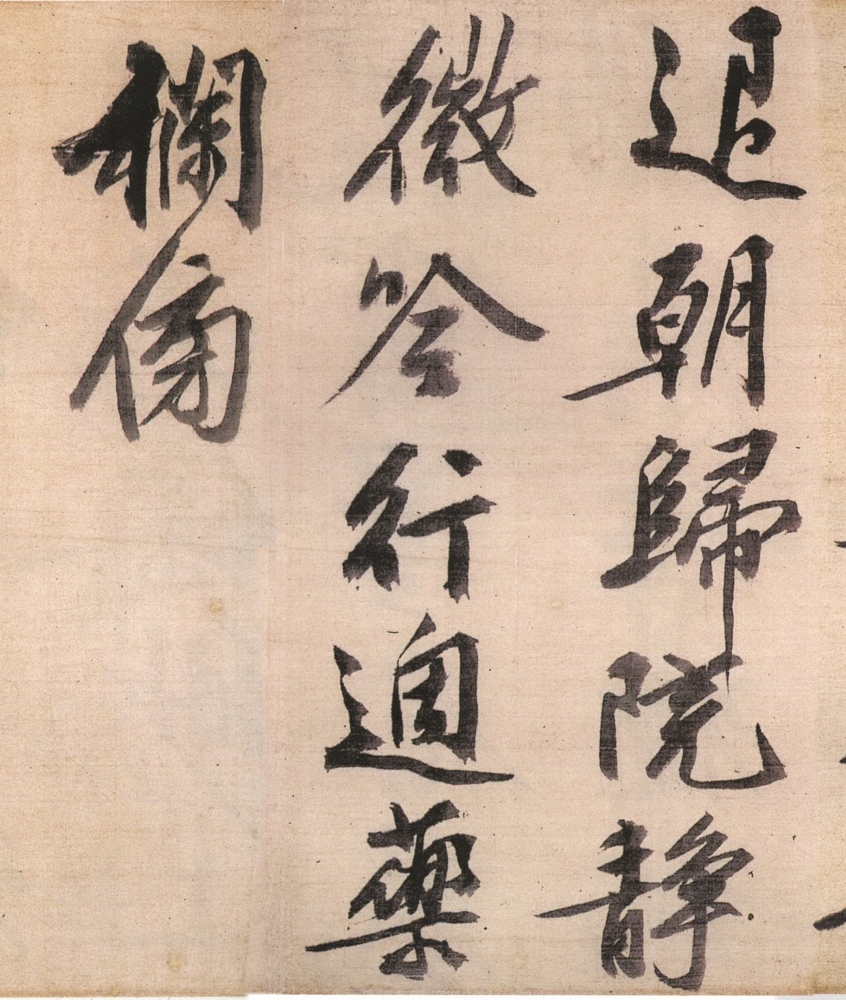 退朝歸院静
微吟行適藥
欄傍